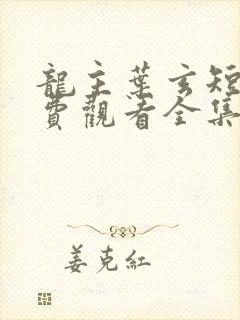 龍主葉玄短
費觀看全集
姜克紅